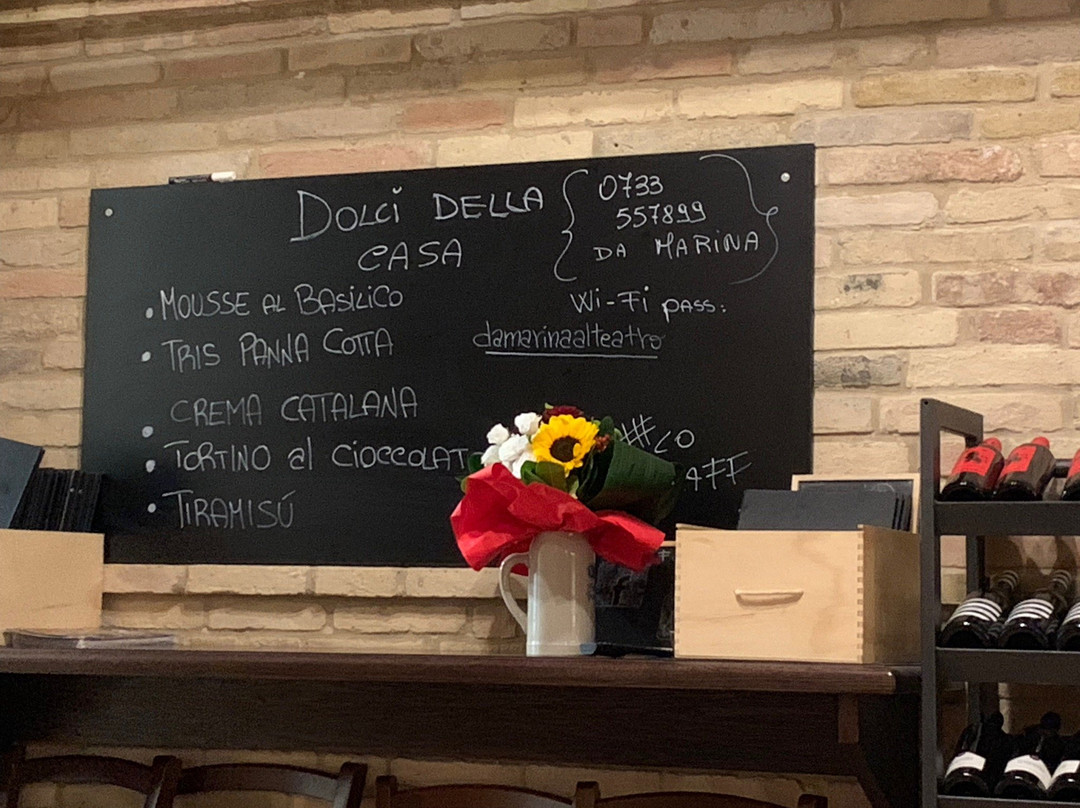 DOLCI DELLA
CASA
0733
557899
DA MARINA
• MOUSSE AL BASILICO
• TRIS PANNA COTTA
• CREMA CATALANA
• TORTINO al CIOCCOLAT
• TIRAMISÚ
Wi-Fi pass:
damarinaalteatro